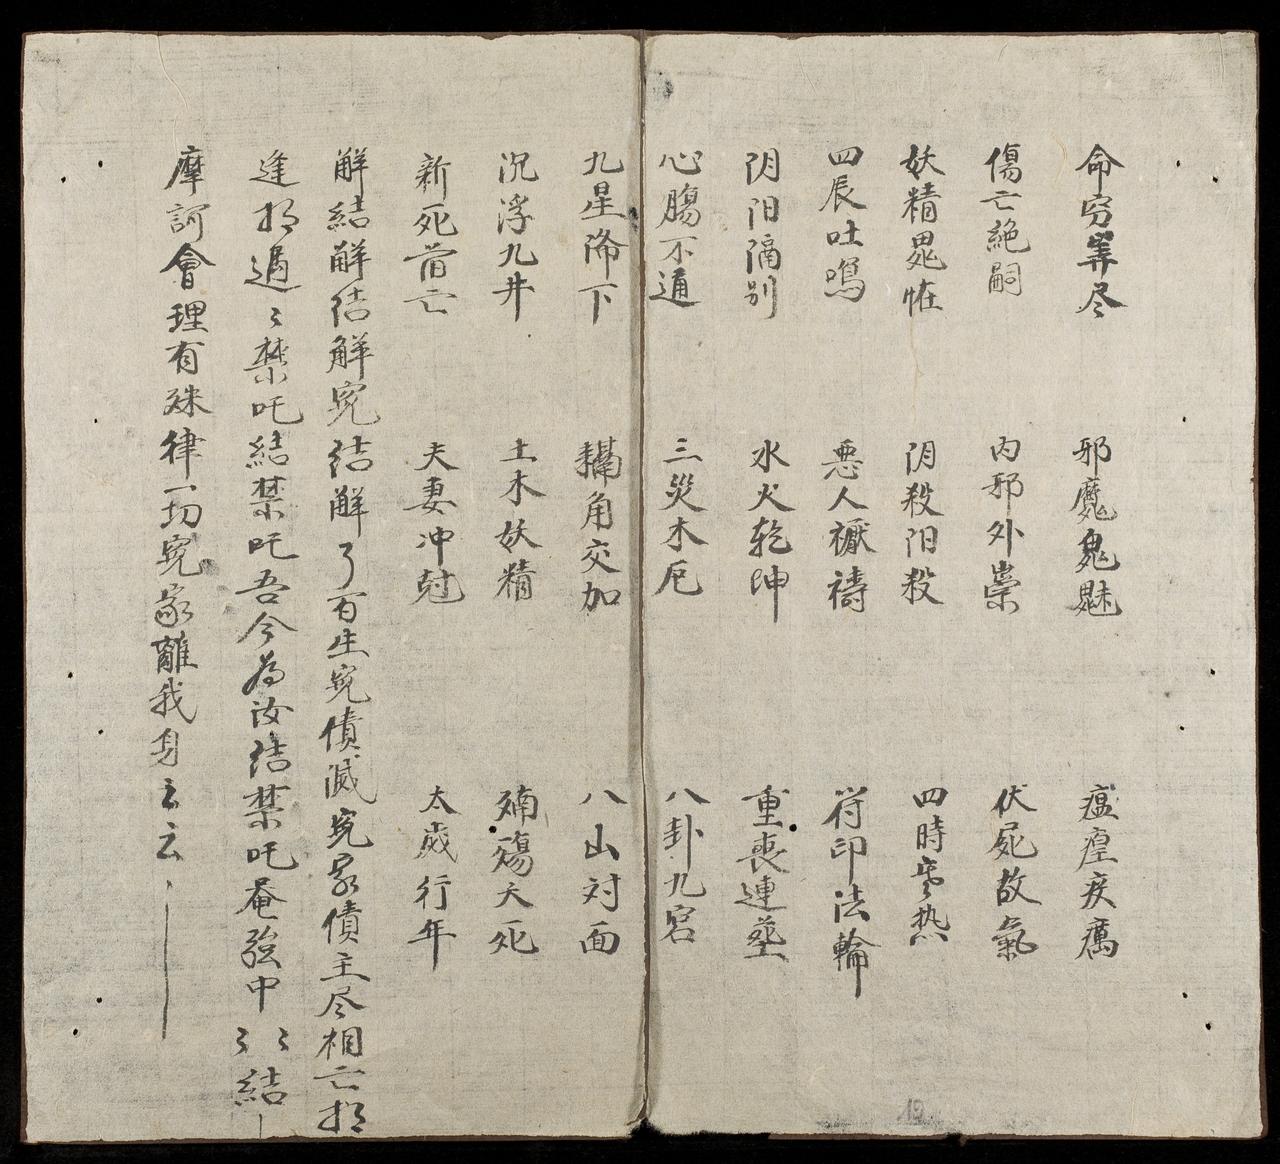 命穷筭尽 邪魔鬼魅 瘟瘴疾癘
傷亡絶嗣 内邪外祟 伏屍故氣
妖精鬼怪 阴殺阳殺 四時寒热
四辰吐鳴 悪人禳禱 符印法輪
阴阳隔别 水火乾坤 重喪連墓
心腸不通 三災木厄 八卦九宫
九星降下 角交加 八山対面
沉浮九井 土木妖精 殤夭死
新死旧亡 夫妻冲尅 太歲行年
解結解结解寃结解了百生寃债滅寃家债主尽相亡
逢遇〻禁吒結禁吒吾今為汝结禁吒菴強中〻〻結
摩訶會理有殊律一切寃家離我身云云